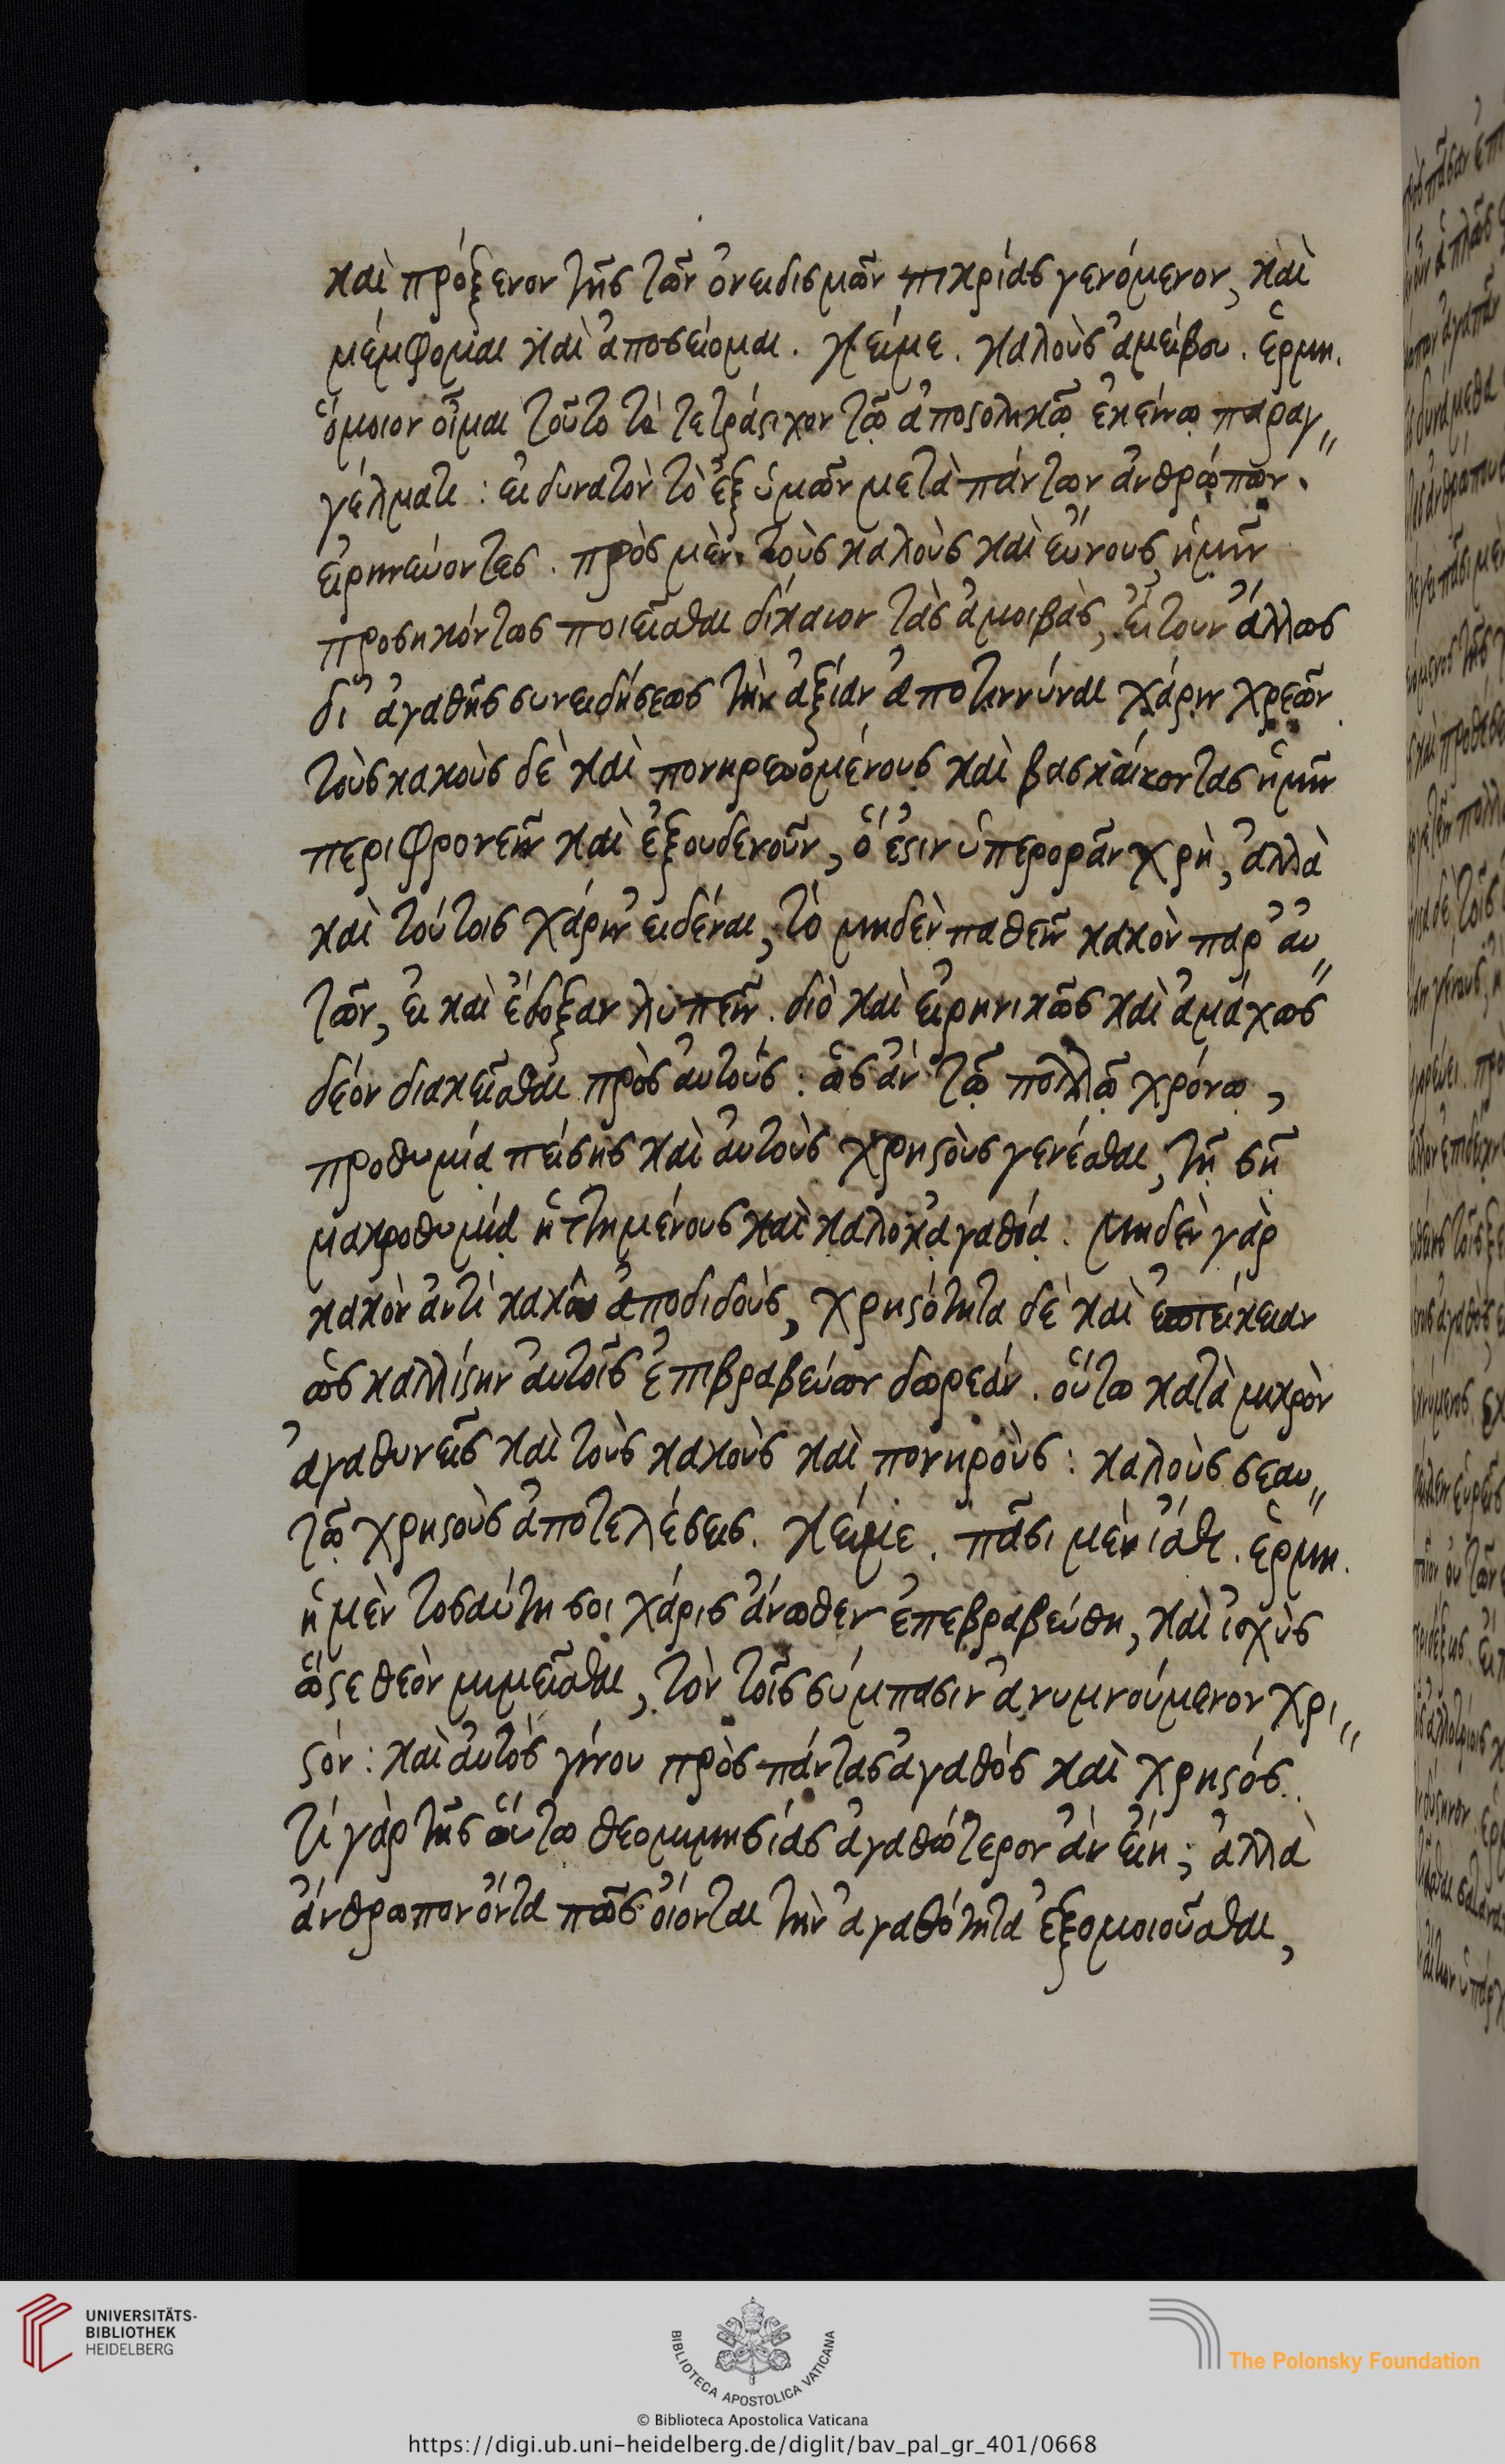 καὶ πρόξενον τῆς τῶν ὀνειδισμῶν πικρίας γενόμενον, καὶ
μέμφομαι καὶ ἀποσείομαι. κείμε. καλοὺς ἀμείβου. ἑρμη.
ὅμοιον οἶμαι τοῦτο τὸ τετράστιχον τῷ ἀποστολικῷ ἐκείνῳ παραγ〃
γέλματι: εἰ δυνατὸν τὸ ἐξ ὑμῶν μετὰ πάντων ἀνθρώπων.
εἰρηνεύοντες. πρὸς μὲν τοὺς καλοὺς καὶ εὔνους ἡμῖν
προσηκόντως ποιεῖσθαι δίκαιον τὰς ἀμοιβὰς, εἴτουν ἄλλως
δι' ἀγαθῆς συνειδήσεως τὴν ἀξίαν ἀποτιννύναι χάριν χρεῶν.
τοὺς κακοὺς δὲ καὶ πονηρευομένους καὶ βασκαίνοντας ἡμῖν
περιφρονεῖν καὶ ἐξουδενοῦν, ὅ ἐστιν ὑπερορᾶν χρὴ, ἀλλὰ
καὶ τούτοις χάριν εἰδέναι, τὸ μηδὲν παθεῖν κακὸν παρ' αὐ〃
τῶν, εἰ καὶ ἔδοξαν λυπεῖν. διὸ καὶ εἰρηνικῶς καὶ ἀμάχως
δέον διακεῖσθαι πρὸς αὐτούς: ὡς ἂν τῷ πολλῷ χρόνῳ,
προθυμίᾳ πείσῃς καὶ αὐτοὺς χρηστοὺς γενέσθαι, τῇ σῇ
μακροθυμίᾳ ἡττημένους καὶ καλοκἀγαθίᾳ: μηδὲν γὰρ
κακὸν ἀντὶ κακοῦ ἀποδιδοὺς, χρηστότητα δὲ καὶ ἐπιείκειαν
ὡς καλλίστην αὐτοῖς ἐπιβραβεύων δωρεάν. οὕτω κατὰ μικρὸν
ἀγαθυνεῖς καὶ τοὺς κακοὺς καὶ πονηροὺς: καλοὺς σεαυ〃
τῷ χρηστοὺς ἀποτελέσεις. κείμε. πᾶσι μὲν ἴσθι. ἑρμη.
ἡ μὲν τοσαύτη σοι χάρις ἄνωθεν ἐπεβραβεύθη, καὶ ἰσχὺς
ὥστε θεὸν μιμεῖσθαι, τὸν τοῖς σύμπασιν ἀνυμνούμενον χρι〃
στόν: καὶ αὐτὸς γίνου πρὸς πάντας ἀγαθός καὶ χρηστός.
τί γὰρ τῆς οὕτω θεομιμησίας ἀγαθώτερον ἂν εἴη; ἀλλὰ
ἄνθρωπον ὄντα πῶς οἴονται τὴν ἀγαθότητα ἐξομοιοῦσθαι,
UNIVERSITÄTS-
BIBLIOTHEK
HEIDELBERG
BIBLIOTECA APOSTOLICA VATICANA
The Polonsky Foundation
© Biblioteca Apostolica Vaticana
https://digi.ub.uni-heidelberg.de/diglit/bav_pal_gr_401/0668